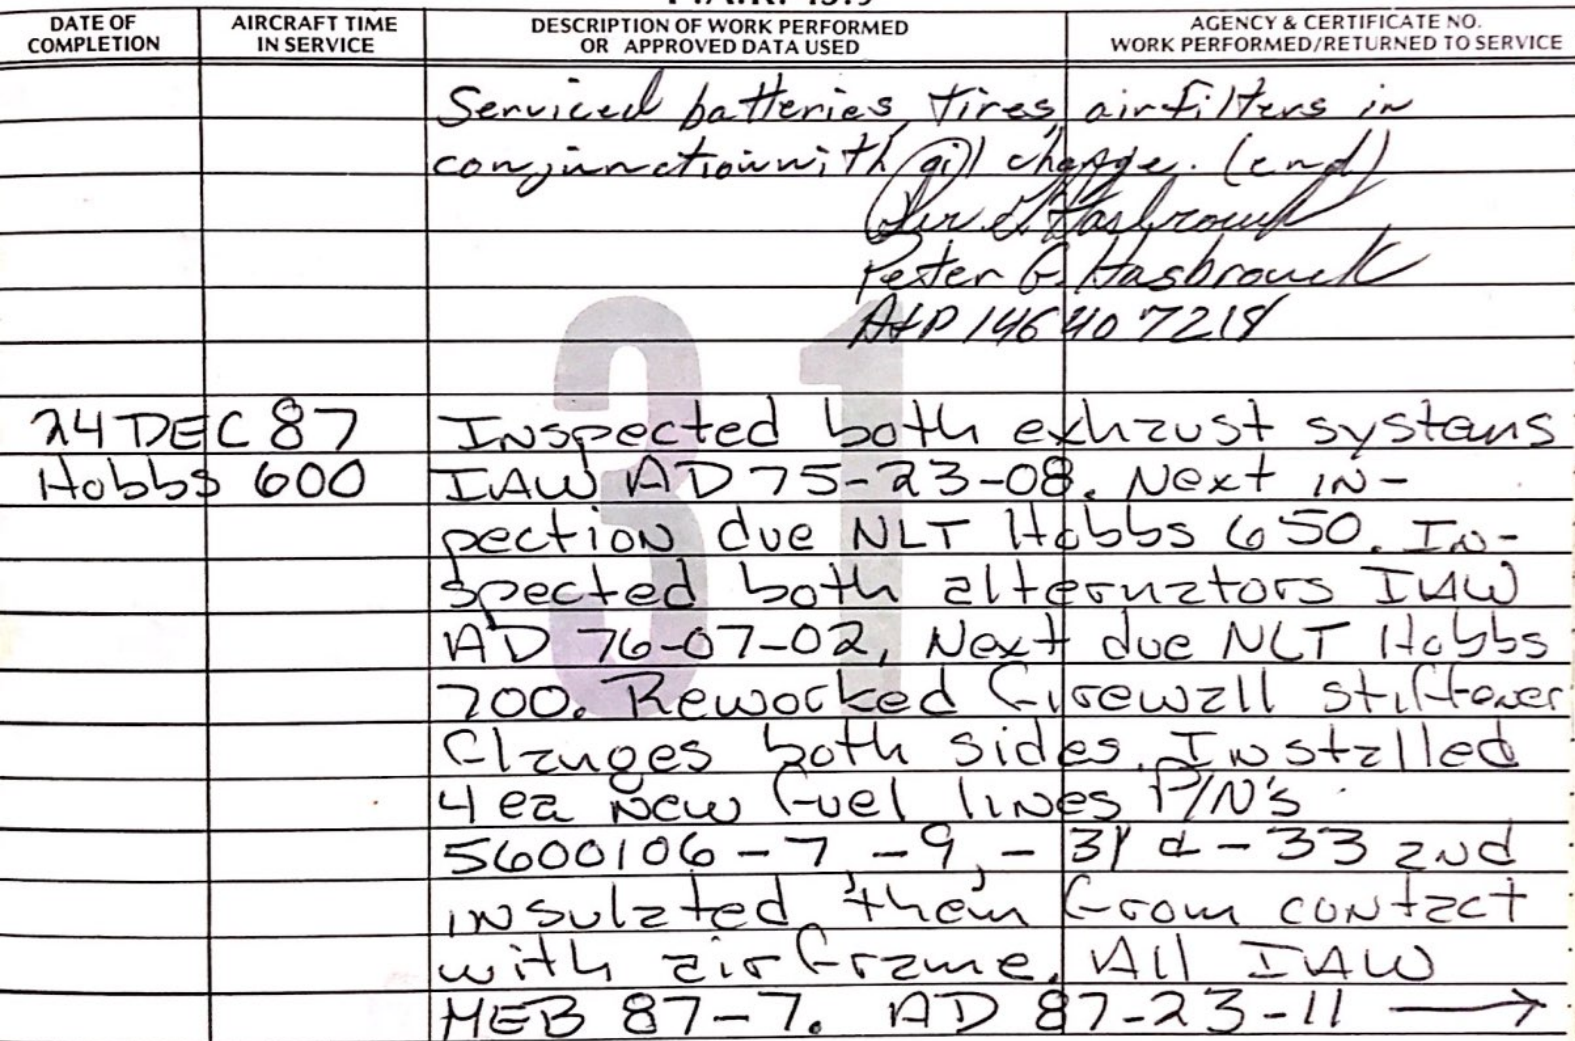 DATE OF COMPLETION
AIRCRAFT TIME IN SERVICE
DESCRIPTION OF WORK PERFORMED OR APPROVED DATA USED
AGENCY & CERTIFICATE NO. WORK PERFORMED/RETURNED TO SERVICE
Serviced batteries, tires, air filters in
conjunction with oil change. (end)
Peter G. Hasbrouck
A&P 146407218
31
24 DEC 87 Inspected both exhaust systems
Hobbs 600 IAW AD 75-23-08. Next in-
pection due NLT Hobbs 650. In-
spected both alternators IAW
AD 76-07-02, Next due NLT Hobbs
700. Reworked firewall stiffener
flanges both sides. Installed
4 ea new fuel lines P/N's
5600106-7, -9, -31 & -33 and
insulated them from contact
with airframe. All IAW
MEB 87-7. AD 87-23-11 →